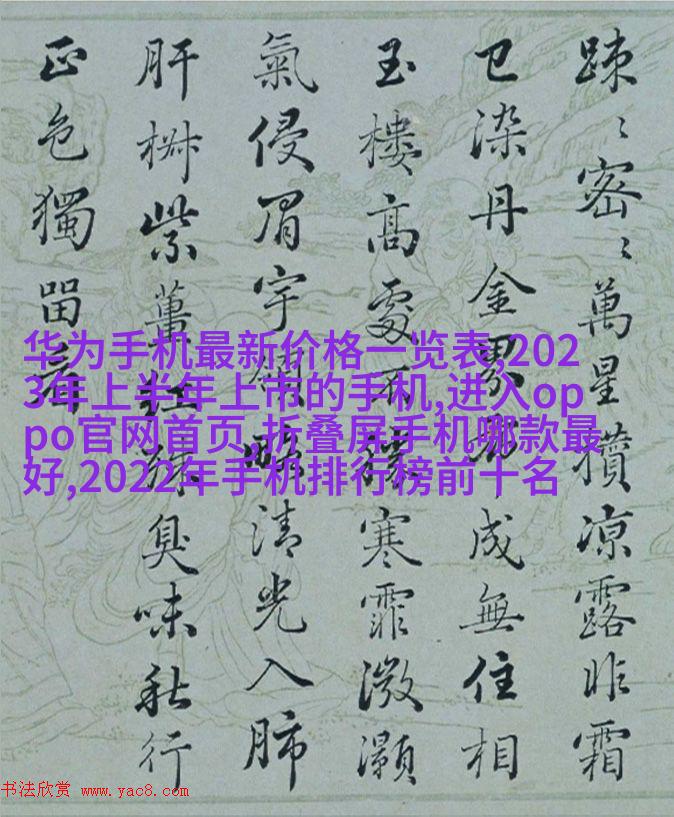 踈〻密〻萬星攢凉露昨霜
已染丹金界成無住相
玉樓高處不寒霏激灝
氣侵眉宇領略清光入肺
肝紫紅臭味秋行
正色獨留
华为手机最新价格一览表,202
3年上半年上市的手机,进入op
po官网首页,折叠屏手机哪款最
好,2022年手机排行榜前十名
书法欣赏 www.yac8.com